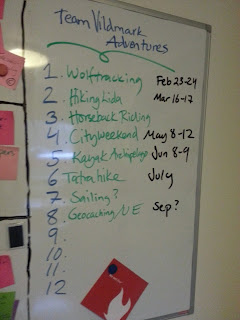 Team Vildmark
Adventures
1. Wolftracking Feb 23-24
2. Hiking Lida Mar 16-17
3. Horseback Riding
4. Cityweekend May 8-12
5. Kayak Archipelago Jun 8-9
6 Tatrahike July
7. Sailing?
8. Geocaching/UE Sep?
9.
10.
11.
12